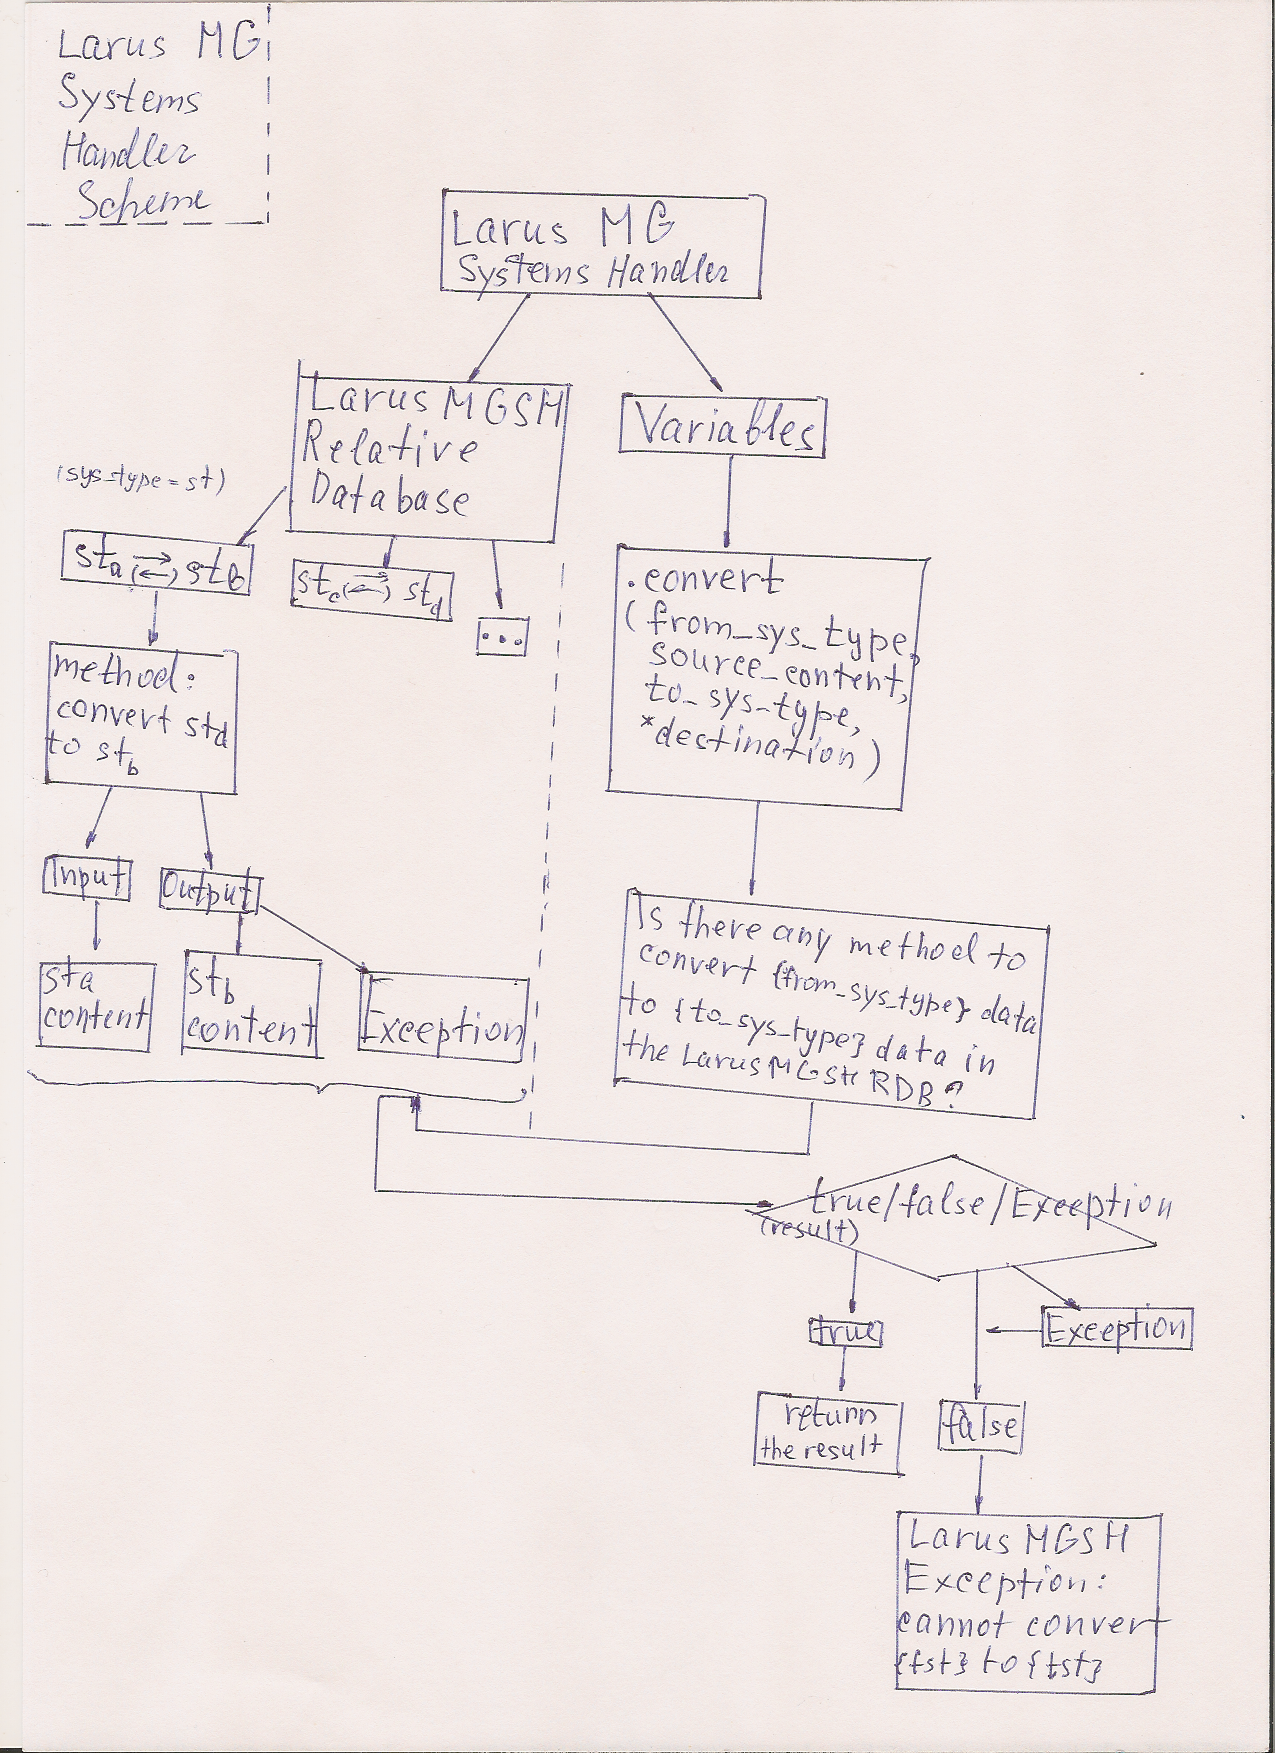 Larus MG
Systems
Handler
Scheme
Larus MG
Systems Handler
Larus MGSH
Relative
Database
Variables
(sys_type = st)
st_a (⇄) st_b
st_c (⇄) st_d
...
.convert
(from_sys_type,
source_content,
to_sys_type,
*destination)
method:
convert st_a
to st_b
Input
Output
st_a
content
st_b
content
Exception
Is there any method to
convert {from_sys_type} data
to {to_sys_type} data in
the LarusMGSH RDB?
true/false/Exception
(result)
true
Exception
return
the result
false
Larus MGSH
Exception:
cannot convert
{fst} to {tst}